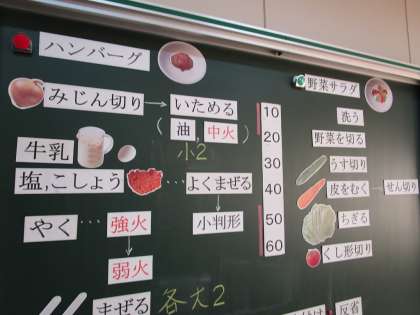 ハンバーグ
みじん切り → いためる
(油, 中火)
小2
牛乳
塩,こしょう … よくまぜる
やく … 強火
小判形
弱火
まぜる 各大2
10
20
30
40
50
60
野菜サラダ
洗う
野菜を切る
うす切り
皮をむく
せん切り
ちぎる
くし形切り
反省